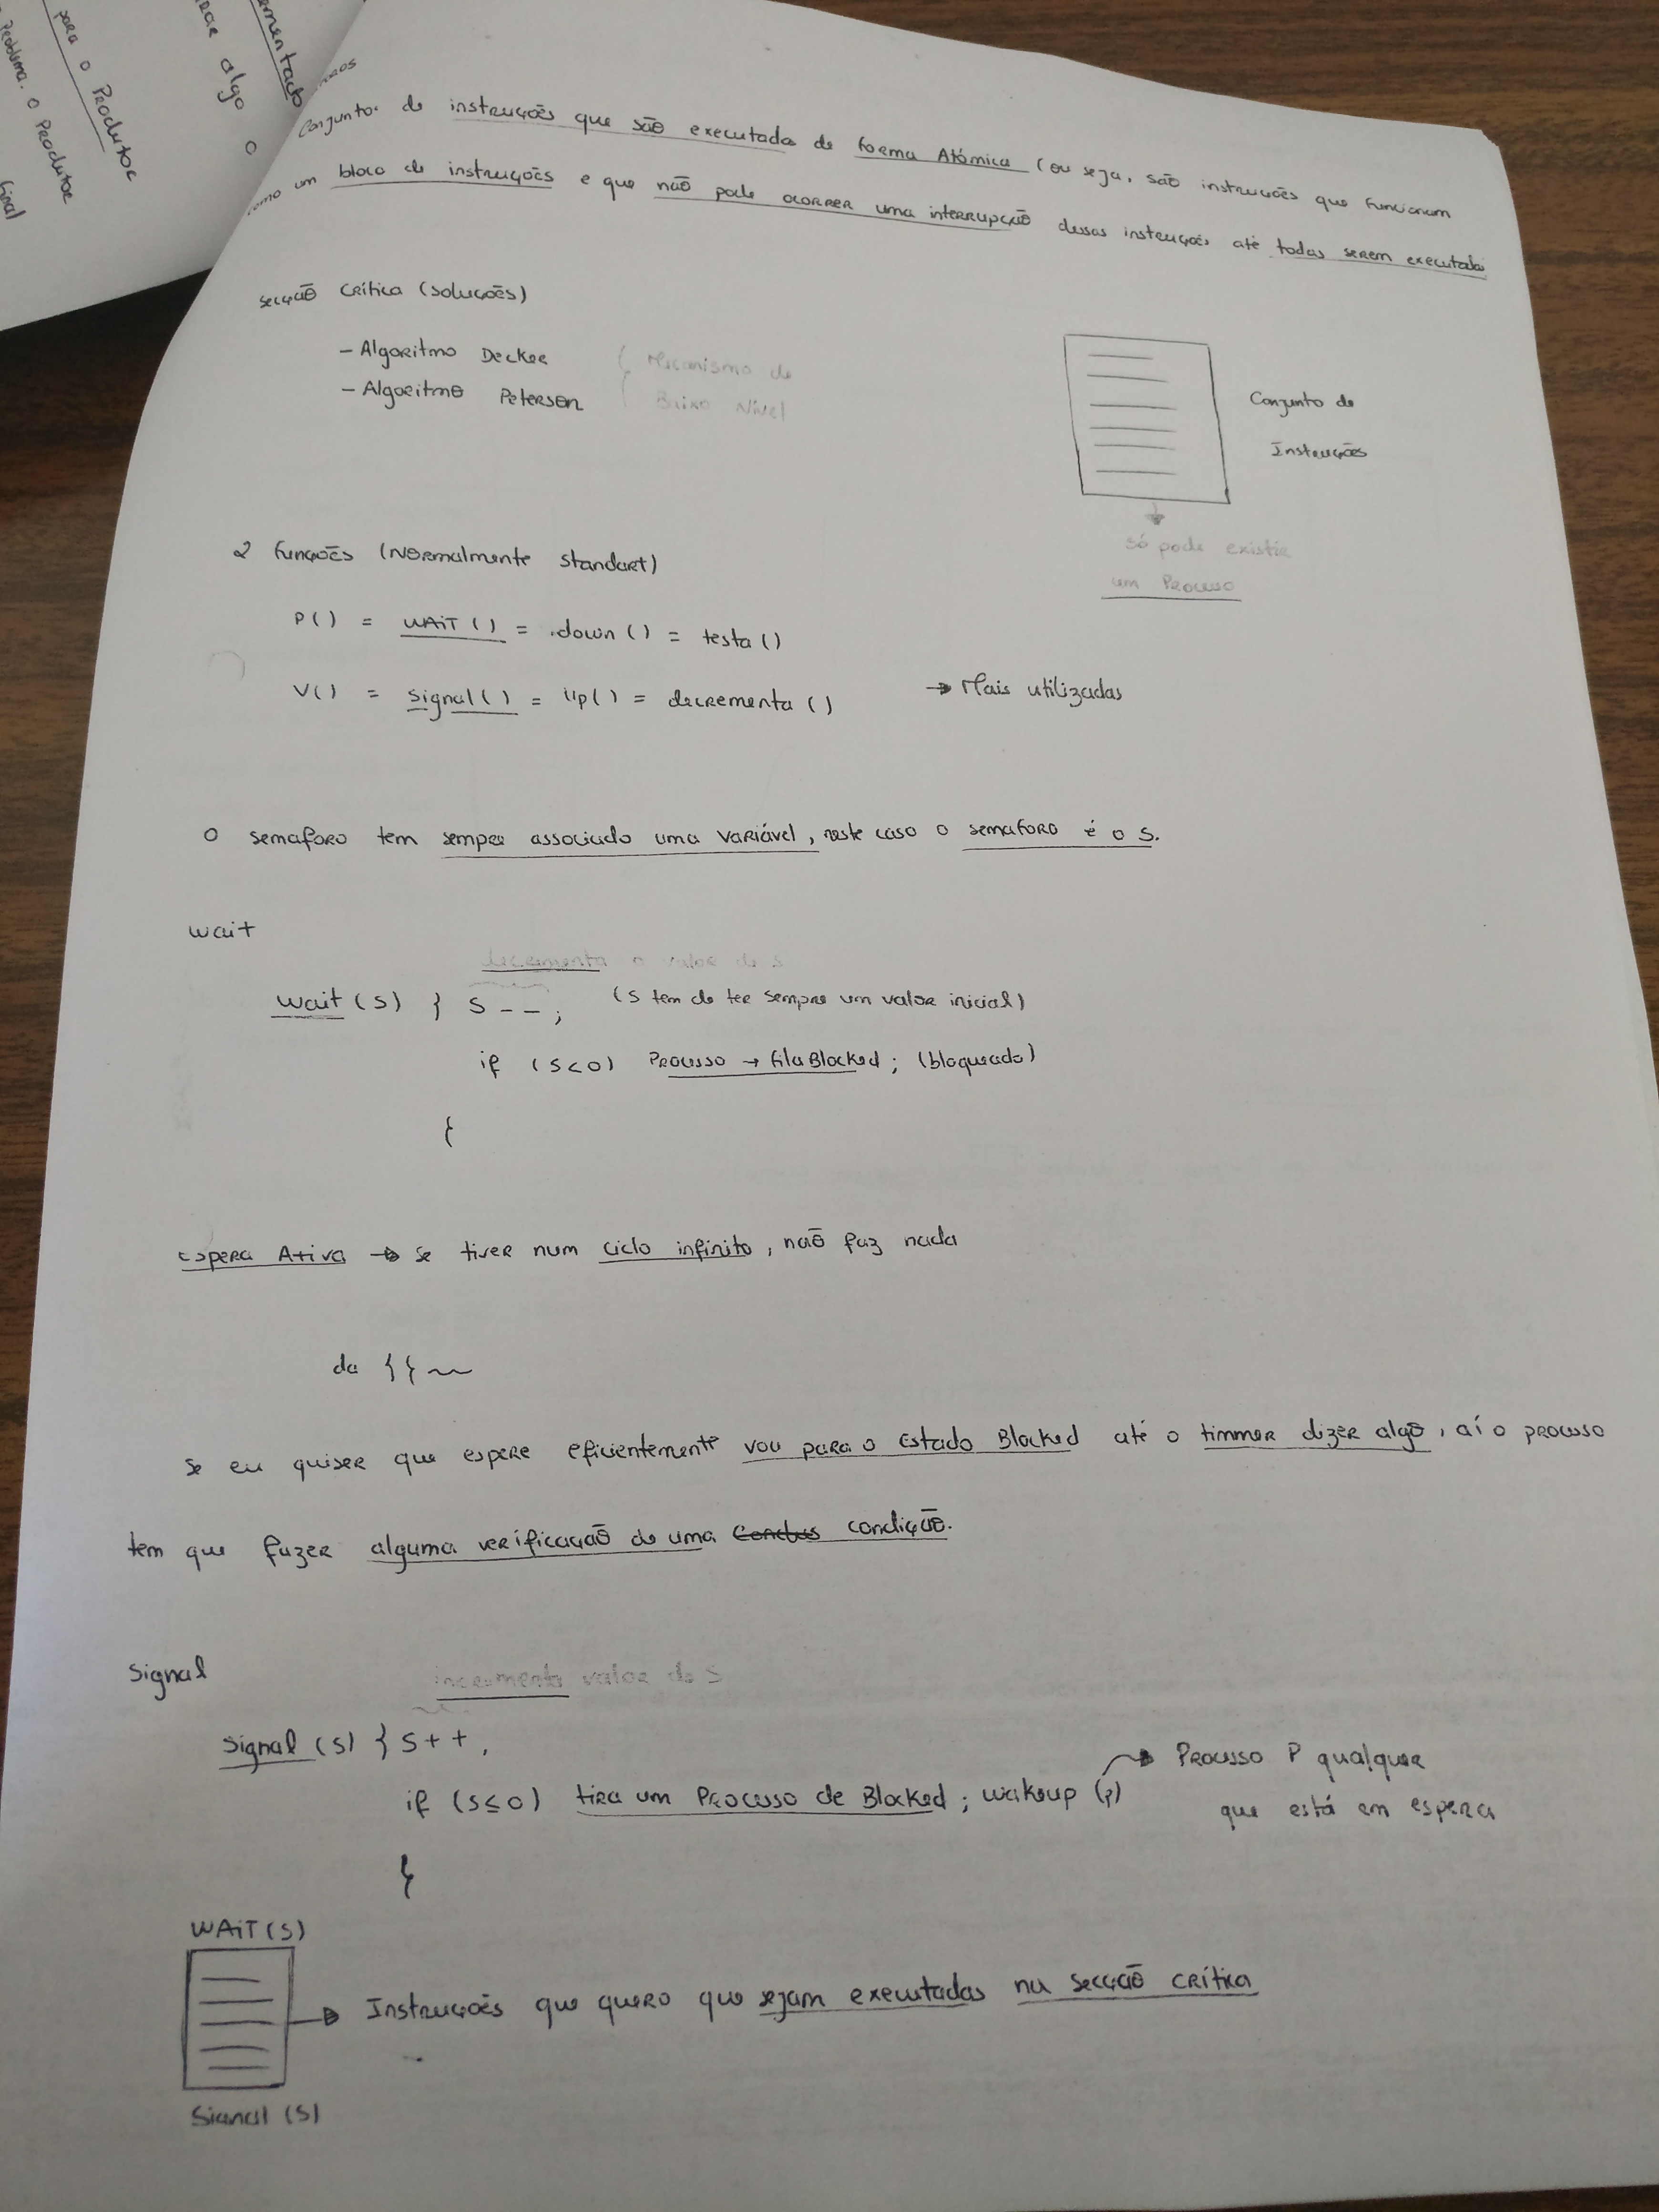 para o Produtor
Problema. o Produtor
final
algo o
Conjunto de instruções que são executada de forma Atómica (ou seja, são instruções que funcionam
como um bloco de instruções e que não pode ocorrer uma interrupção dessas instruções até todas serem executada
secção crítica (soluções)
- Algoritmo Decker
- Algoritmo Peterson
Mecanismo de
Baixo Nível
Conjunto de
Instruções
só pode existir
um Processo
2 funções (Normalmente standart)
P() = WAIT() = down() = testa()
V() = signal() = Up() = decrementa()
→ Mais utilizadas
O semaforo tem sempre associado uma variável, neste caso o semaforo é o s.
wait
decrementa o valor de s
wait (s) } s--; (s tem de ter sempre um valor inicial)
if (s<0) Processo → fila Blocked; (bloqueado)
{
Espera Ativa → se tiver num ciclo infinito, não faz nada
do {{
se eu quiser que espere eficientemente vou para o Estado Blocked até o timmer dizer algo, aí o processo
tem que fazer alguma verificação de uma condição.
Signal
incrementa valor de s
signal (s) } s++,
if (s≤0) tira um Processo de Blocked; wakeup (p)
→ Processo P qualquer
que está em espera
}
WAIT(S)
→ Instruções que quero que sejam executadas na secção crítica
Signal (S)